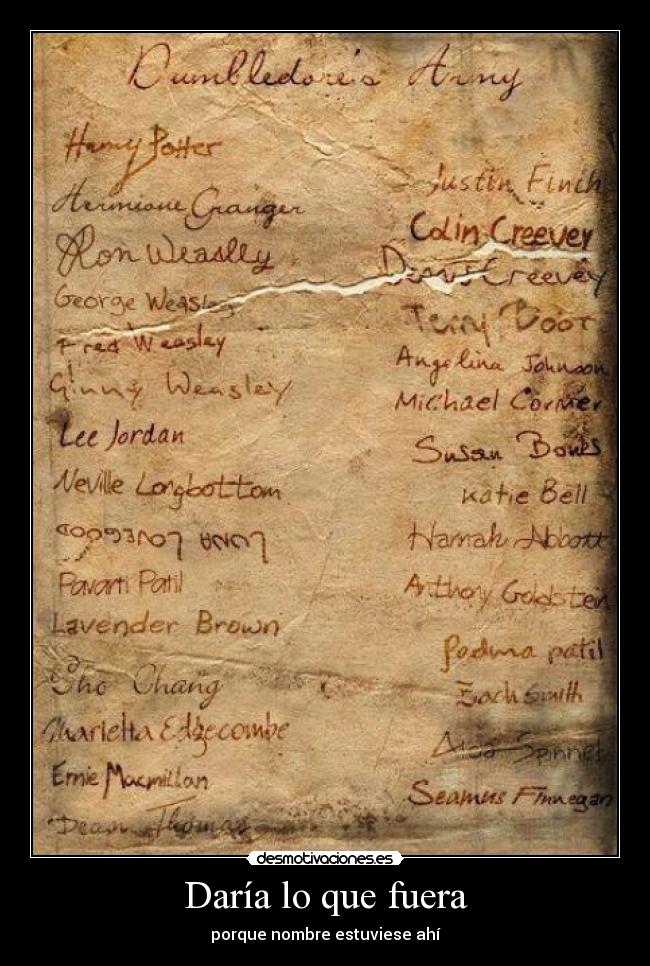 Dumbledore's Army
Harry Potter
Hermione Granger
Ron Weasley
George Weasley
Fred Weasley
Ginny Weasley
Lee Jordan
Neville Longbottom
LUNA LOVEGOOD
Pavarti Patil
Lavender Brown
Cho Chang
Marietta Edgecombe
Ernie Macmillan
Dean Thomas
Justin Finch
Colin Creevey
Dennis Creevey
Terry Boot
Angelina Johnson
Michael Corner
Susan Bones
Katie Bell
Hannah Abbott
Anthony Goldstein
Padma patil
Zach Smith
Alicia Spinnet
Seamus Finnegan
desmotivaciones.es
Daría lo que fuera
porque nombre estuviese ahí